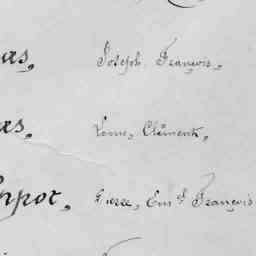 as, Joseph François,
as, Louis, Clément,
ppot, Pierre, Em.d François